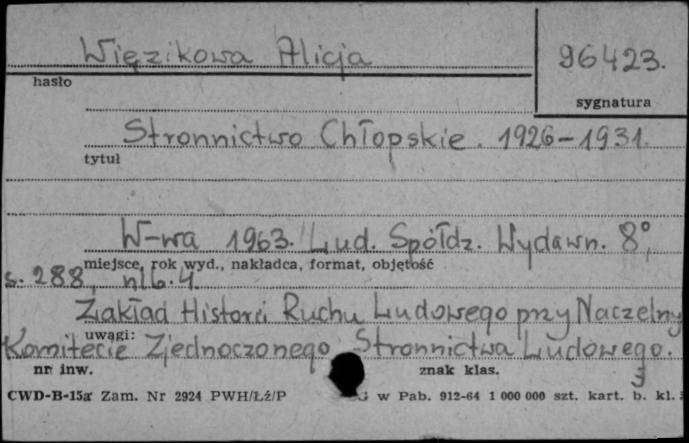 Więzikowa Alicja
96423.
hasło
sygnatura
Stronnictwo Chłopskie. 1926-1931.
tytuł
W-wa 1963. Lud. Spółdz. Wydawn. 8°,
miejsce, rok wyd., nakładca, format, objętość
s. 288, nlb. 4.
Zakład Historii Ruchu Ludowego przy Naczelny
uwagi:
Komitecie Zjednoczonego Stronnictwa Ludowego.
nr inw.
znak klas.
3
CWD-B-15a Zam. Nr 2924 PWH/Łź/P
G w Pab. 912-64 1 000 000 szt. kart. b. kl.